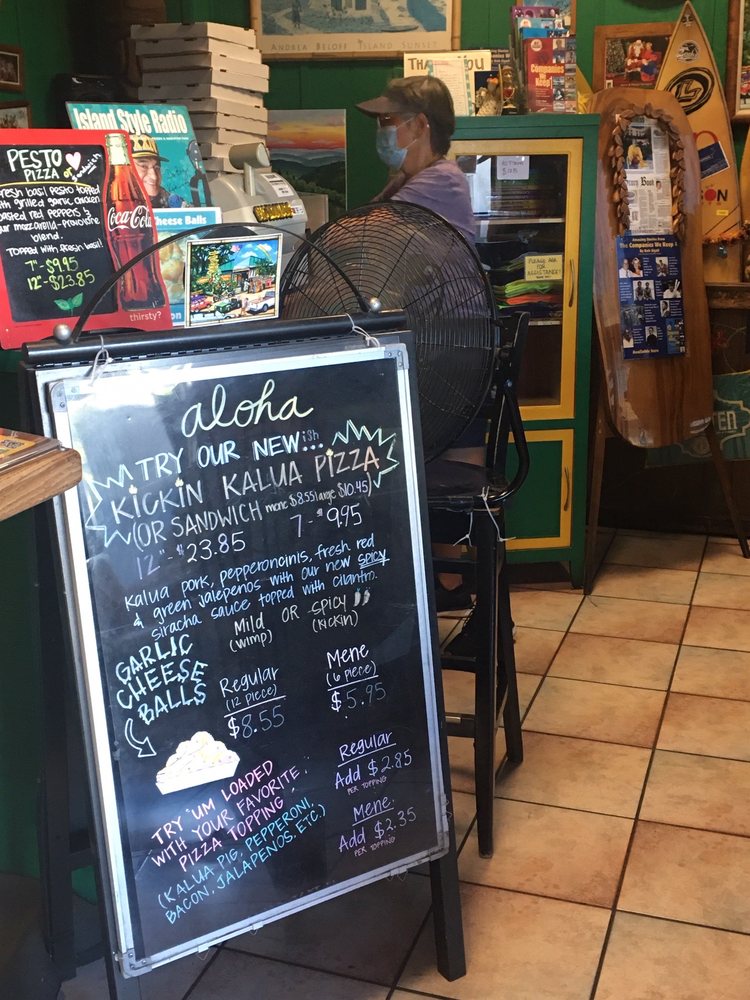 ANDREA BELOFF ISLAND SUNSET
THA
OU
Companies
Keep!
Island Style Radio
Cheese Balls
PESTO
PIZZA or sandwich
Fresh basil pesto topped
with grilled garlic chicken
roasted red peppers &
our mozzarella-provolone
blend
Topped with fresh basil!
7"-$9.95
12"-$23.85
Coca-Cola
thirsty?
PLEASE ASK
FOR
ASSISTANCE
THE COMPANIES
aloha
TRY OUR NEWish...
KICKIN KALUA PIZZA
(OR SANDWICH mene $8.55 large $10.45)
12"-$23.85 7"-$9.95
Kalua pork, pepperoncinis, fresh red
& green jalepenos with our new spicy
siracha sauce topped with cilantro.
Mild OR spicy
(wimp) (kickin)
GARLIC
CHEESE
BALLS
Regular
(12 piece)
$8.55
Mene
(6 piece)
$5.95
TRY 'UM LOADED
WITH YOUR FAVORITE
PIZZA TOPPING!
(KALUA PIG, PEPPERONI,
BACON, JALAPENOS, ETC.)
Regular
Add $2.85
PER TOPPING
Mene
Add $2.35
PER TOPPING